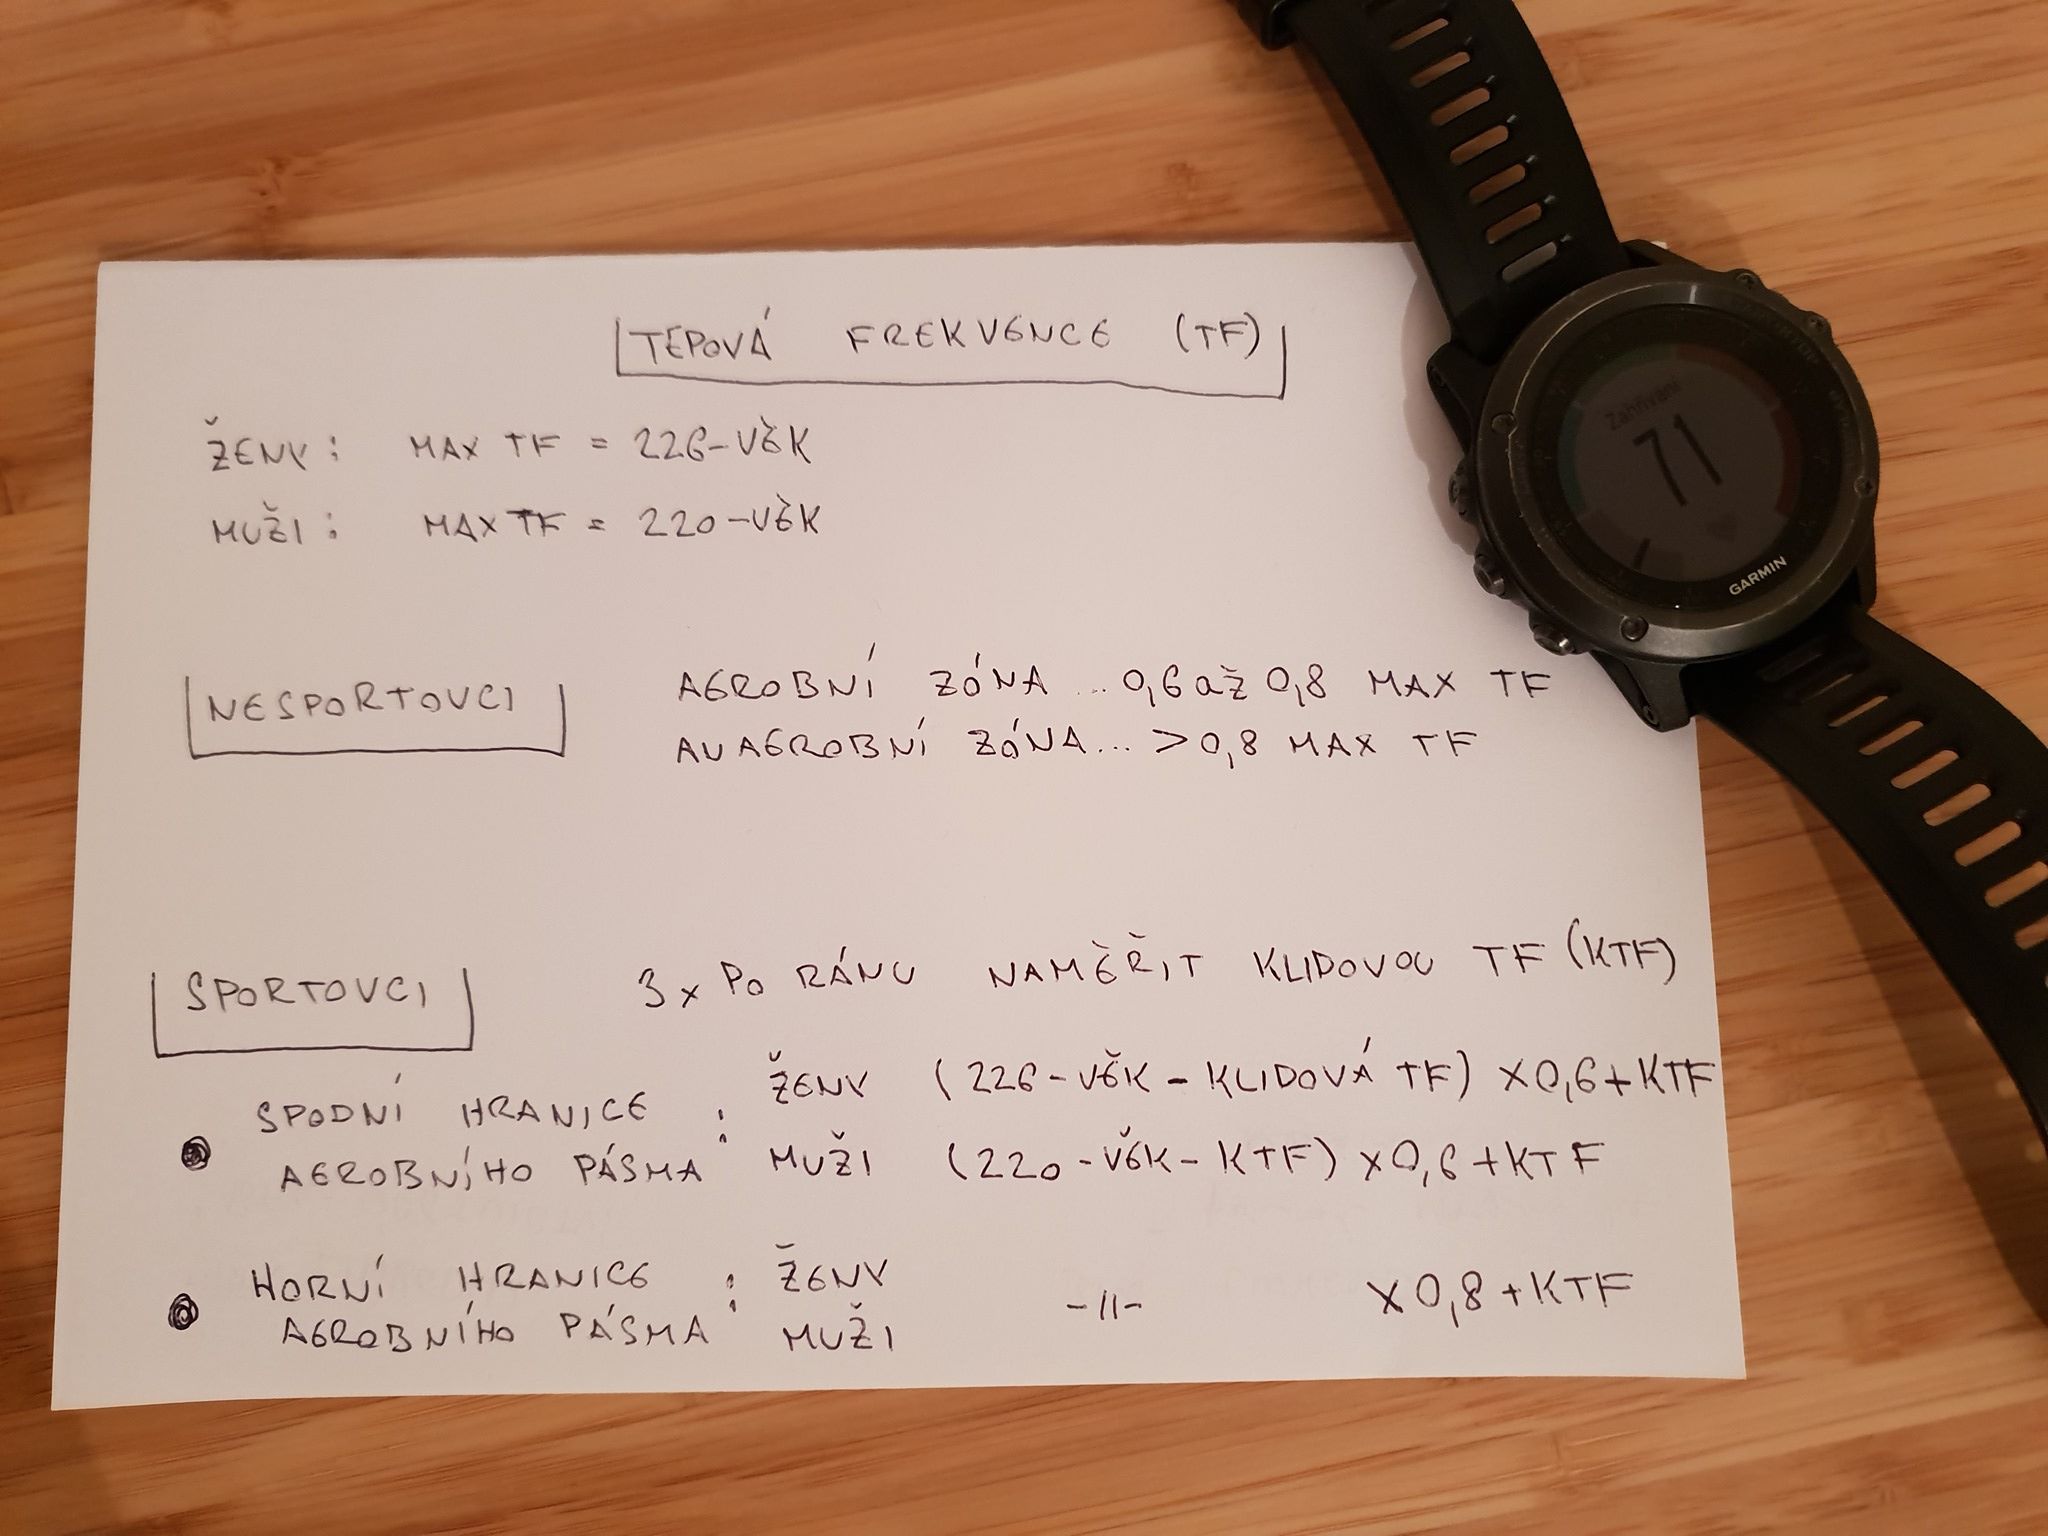 TEPOVÁ FREKVENCE (TF)
ŽENY: MAX TF = 226-VĚK
MUŽI: MAX TF = 220-VĚK
NESPORTOVCI
AEROBNÍ ZÓNA ... 0,6 až 0,8 MAX TF
ANAEROBNÍ ZÓNA... >0,8 MAX TF
SPORTOVCI
3x PO RÁNU NAMĚŘIT KLIDOVOU TF (KTF)
SPODNÍ HRANICE
AEROBNÍHO PÁSMA :
ŽENY (226-VĚK-KLIDOVÁ TF) X0,6+KTF
MUŽI (220-VĚK-KTF) X0,6+KTF
HORNÍ HRANICE
AEROBNÍHO PÁSMA :
ŽENY
MUŽI
-//- X0,8+KTF
Zahřívání
71
GARMIN